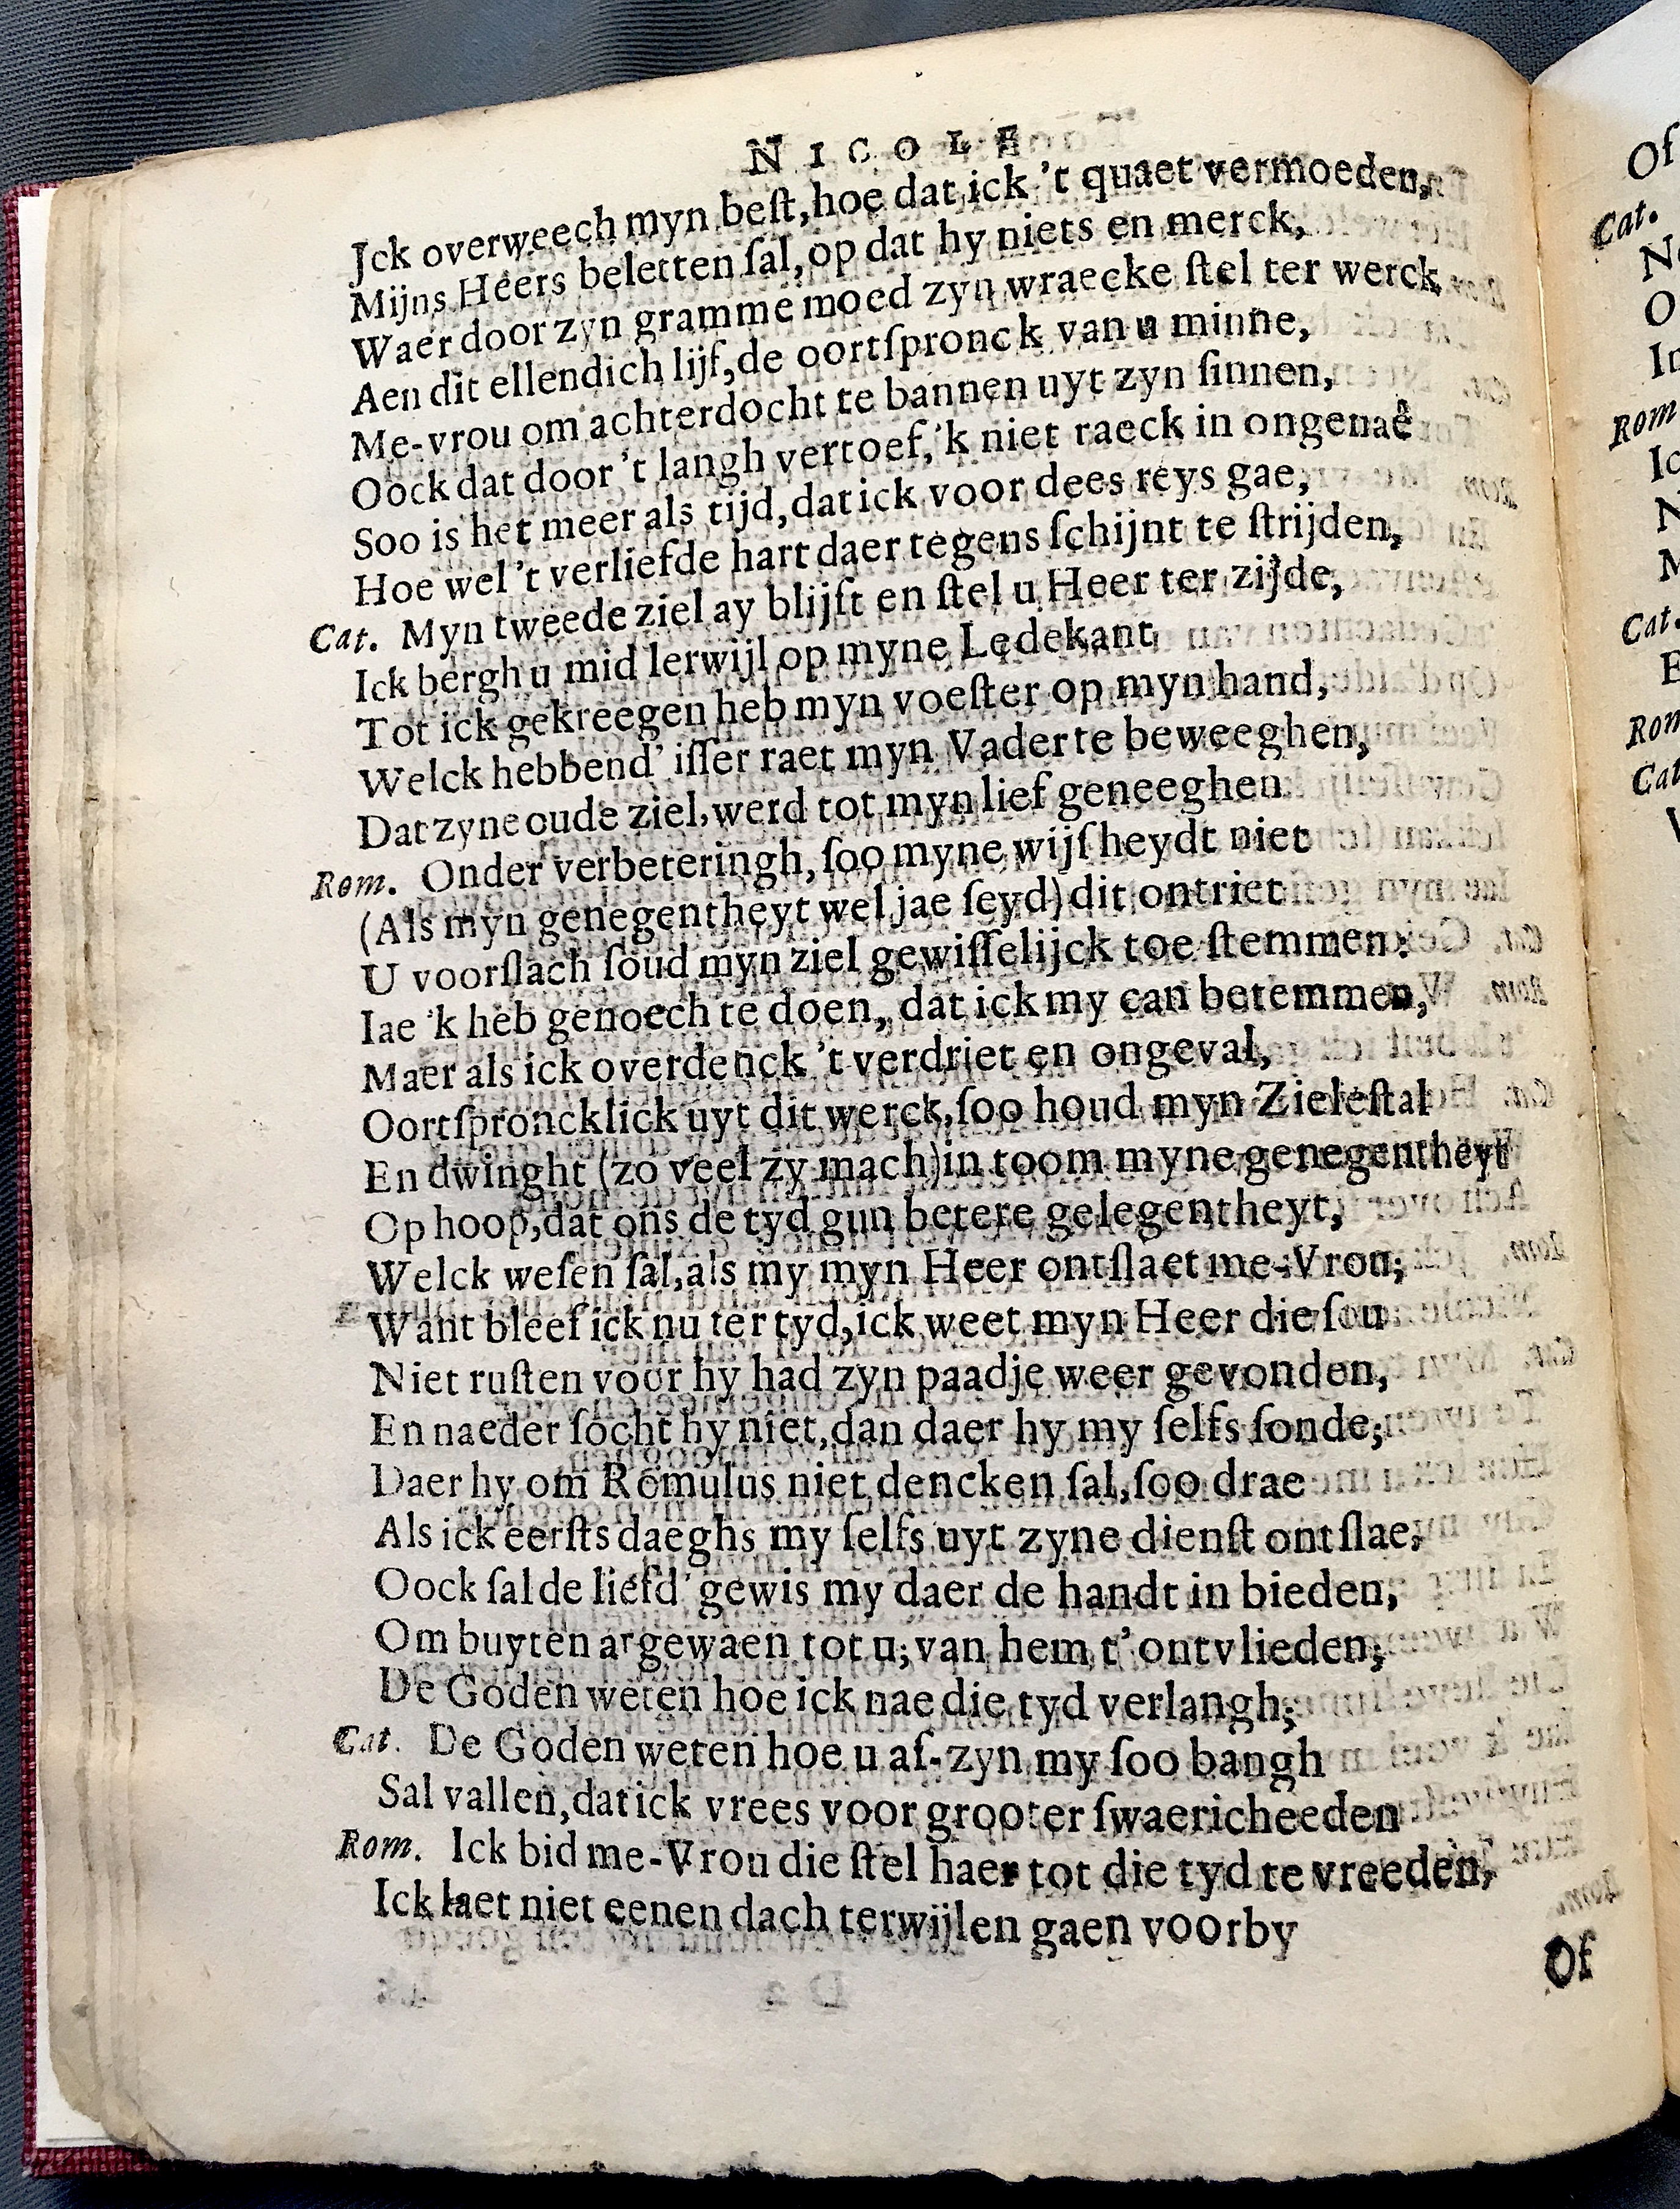 NICOLE
Jck overweech myn beſt, hoe dat ick 't quaet vermoeden,
Mijns Heers beletten ſal, op dat hy niets en merck,
Waer door zyn gramme moed zyn wraecke ſtel ter werck
Aen dit ellendich lijf, de oortſpronck van u minne,
Me-vrou om achterdocht te bannen uyt zyn ſinnen,
Oock dat door 't langh vertoef, 'k niet raeck in ongenaê
Soo is het meer als tijd, dat ick voor dees reys gae,
Hoe wel 't verliefde hart daer tegens ſchijnt te ſtrijden,
Cat. Myn tweede ziel ay blijft en ſtel u Heer ter zijde,
Ick bergh u mid lerwijl op myne Ledekant
Tot ick gekreegen heb myn voeſter op myn hand,
Welck hebbend' iſſer raet myn Vader te beweeghen,
Dat zyne oude ziel, werd tot myn lief geneeghen
Rom. Onder verbeteringh, ſoo myne wijſheydt niet
(Als myn genegentheyt wel jae ſeyd) dit ontriet
U voorſlach ſoud myn ziel gewiſſelijck toe ſtemmen:
Iae 'k heb genoech te doen, dat ick my can betemmen,
Maer als ick overdenck 't verdriet en ongeval,
Oortſproncklick uyt dit werck, ſoo houd myn Zieleſtal
En dwinght (zo veel zy mach) in toom myne genegentheyt
Op hoop, dat ons de tyd gun betere gelegentheyt,
Welck weſen ſal, als my myn Heer ontſlaet me-Vrou;
Want bleef ick nu ter tyd, ick weet myn Heer die ſou
Niet ruſten voor hy had zyn paadje weer gevonden,
En naeder ſocht hy niet, dan daer hy my ſelfs ſonde;
Daer hy om Romulus niet dencken ſal, ſoo drae
Als ick eerſts daeghs my ſelfs uyt zyne dienſt ontſlae,
Oock ſal de liefd' gewis my daer de handt in bieden,
Om buyten argewaen tot u; van hem t' ontvlieden;
De Goden weten hoe ick nae die tyd verlangh;
Cat. De Goden weten hoe u af-zyn my ſoo bangh
Sal vallen, dat ick vrees voor grooter ſwaericheeden
Rom. Ick bid me-Vrou die ſtel haer tot die tyd te vreeden,
Ick laet niet eenen dach terwijlen gaen voorby
Of
Of
Cat.
O
Rom
Ic
Cat.
Rom
Cat